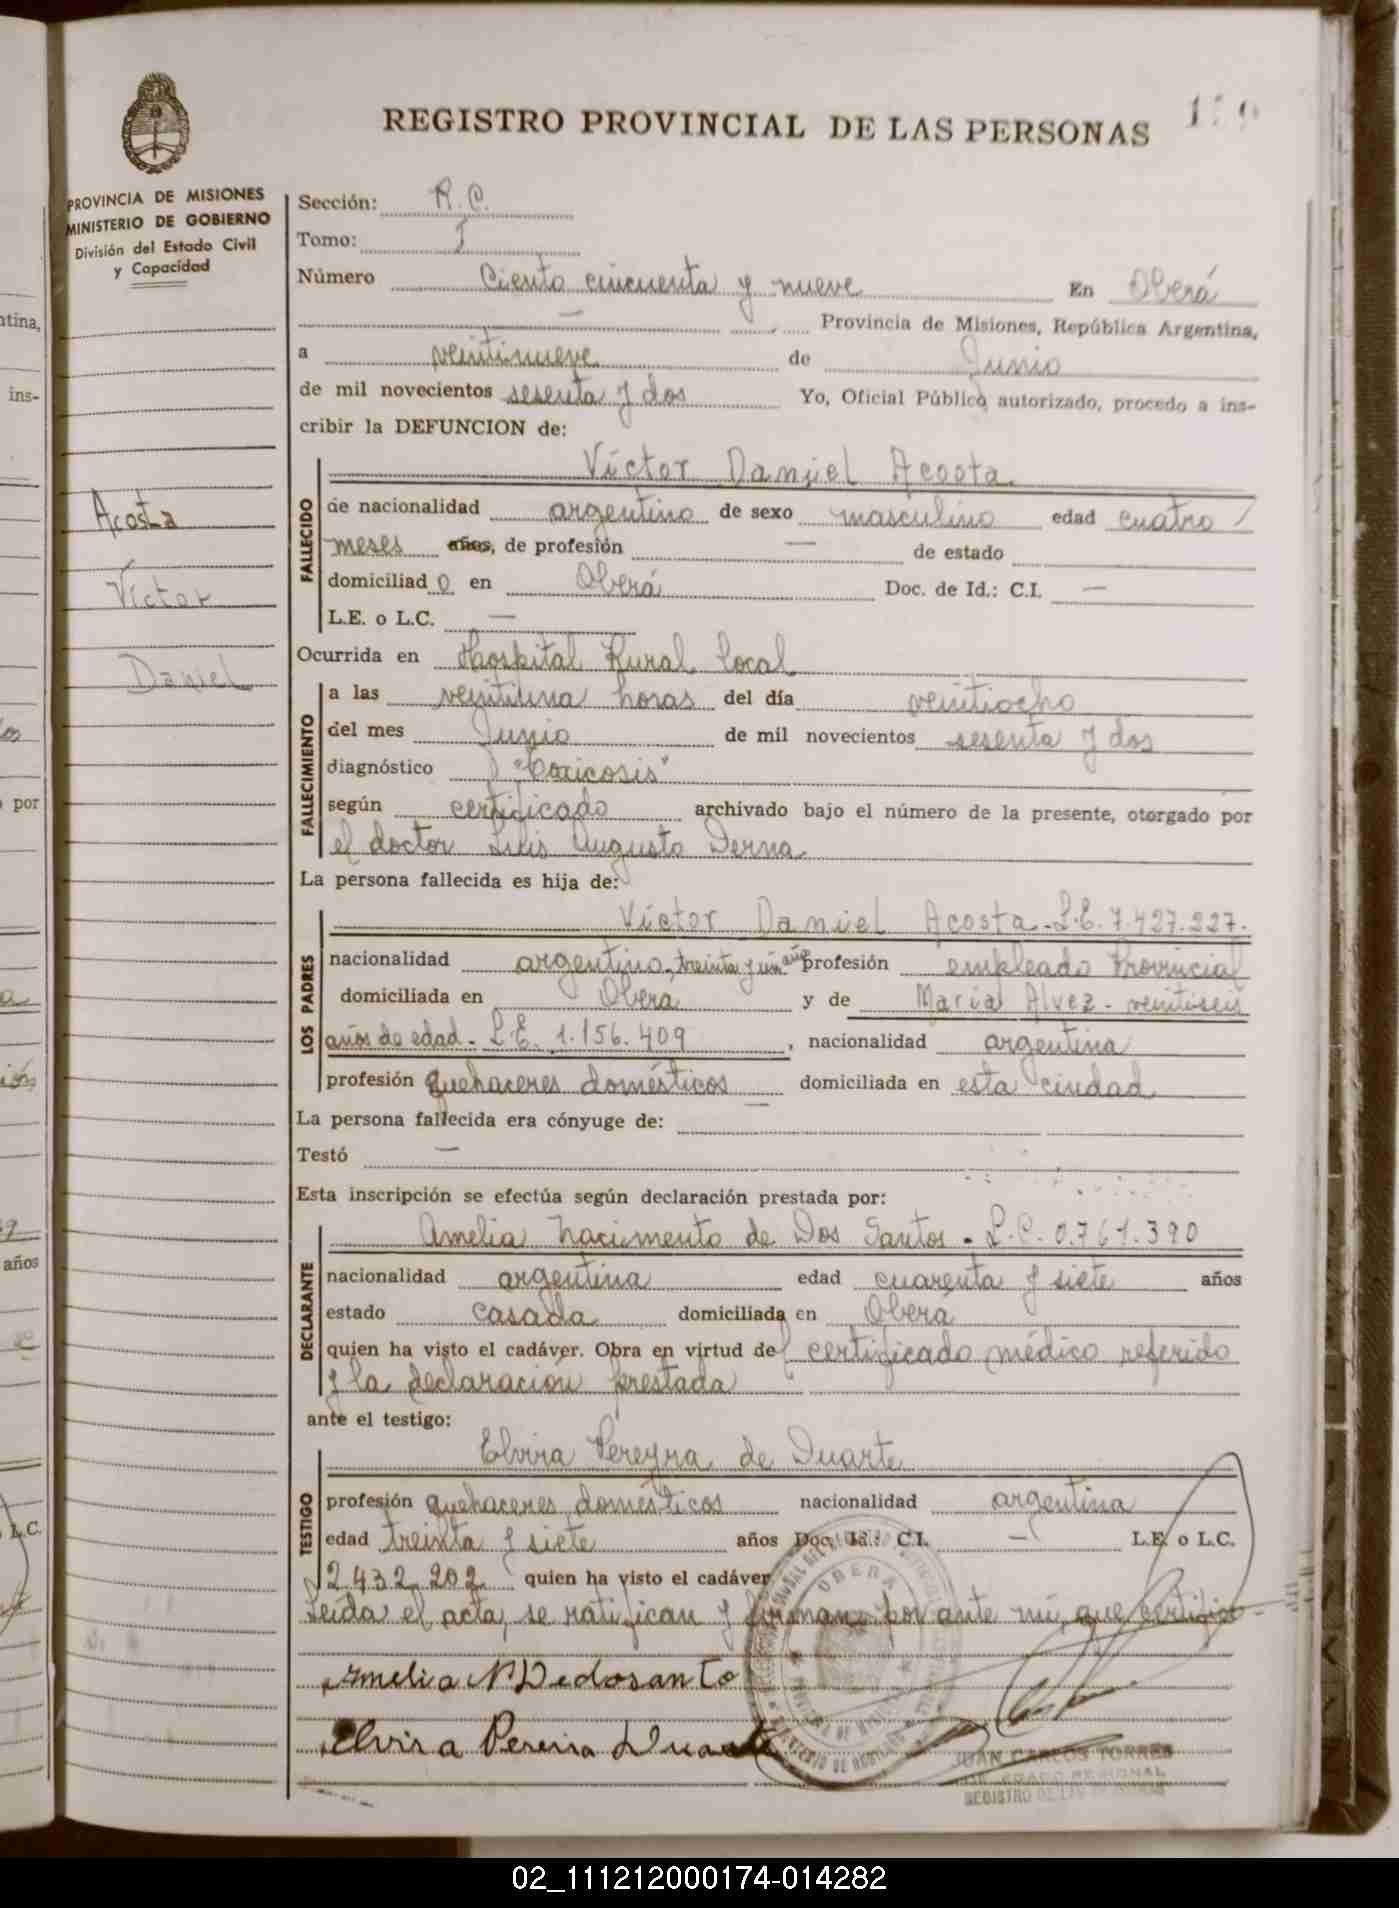 REGISTRO PROVINCIAL DE LAS PERSONAS
PROVINCIA DE MISIONES
MINISTERIO DE GOBIERNO
División del Estado Civil
y Capacidad
Acosta
Víctor
Daniel
Sección: R.C.
Tomo: I
Número Ciento cincuenta y nueve En Oberá
— Provincia de Misiones, República Argentina,
a veintinueve de Junio
de mil novecientos sesenta y dos Yo, Oficial Público autorizado, procedo a ins-
cribir la DEFUNCION de:
FALLECIDO
Víctor Daniel Acosta
de nacionalidad argentino de sexo masculino edad cuatro /
meses años, de profesión — de estado
domiciliad o en Oberá Doc. de Id.: C.I. —
L.E. o L.C. —
Ocurrida en Hospital Rural local
FALLECIMIENTO
a las veintiuna horas del día veintiocho
del mes Junio de mil novecientos sesenta y dos
diagnóstico "Toxicosis"
según certificado archivado bajo el número de la presente, otorgado por
el doctor Luis Augusto Derna
La persona fallecida es hija de:
LOS PADRES
Víctor Daniel Acosta - L.E. 7.427.227.
nacionalidad argentino, treinta y un años profesión empleado Provincial
domiciliada en Oberá y de María Alvez - veintiseis
años de edad - L.E. 1.156.409, nacionalidad argentina
profesión quehaceres domésticos domiciliada en esta ciudad
La persona fallecida era cónyuge de: —
Testó —
Esta inscripción se efectúa según declaración prestada por:
DECLARANTE
Amelia Nacimento de Dos Santos - L.C. 0.761.390
nacionalidad argentina edad cuarenta y siete años
estado casada domiciliada en Oberá
quien ha visto el cadáver. Obra en virtud del certificado médico referido
y la declaración prestada
ante el testigo:
TESTIGO
Elvira Pereyra de Duarte
profesión quehaceres domésticos nacionalidad argentina
edad treinta y siete años Doc. Id.: C.I. — L.E. o L.C.
2.432.202 quien ha visto el cadáver
Leida el acta, se ratifican y firman por ante mí, que certifico
Amelia N Dedosanto
Elvira Pereira Duarte
OBERA
JUAN CARLOS TORRES
REGISTRO DE LAS PERSONAS
tina,
ins-
por
años
L.C.
02_111212000174-014282